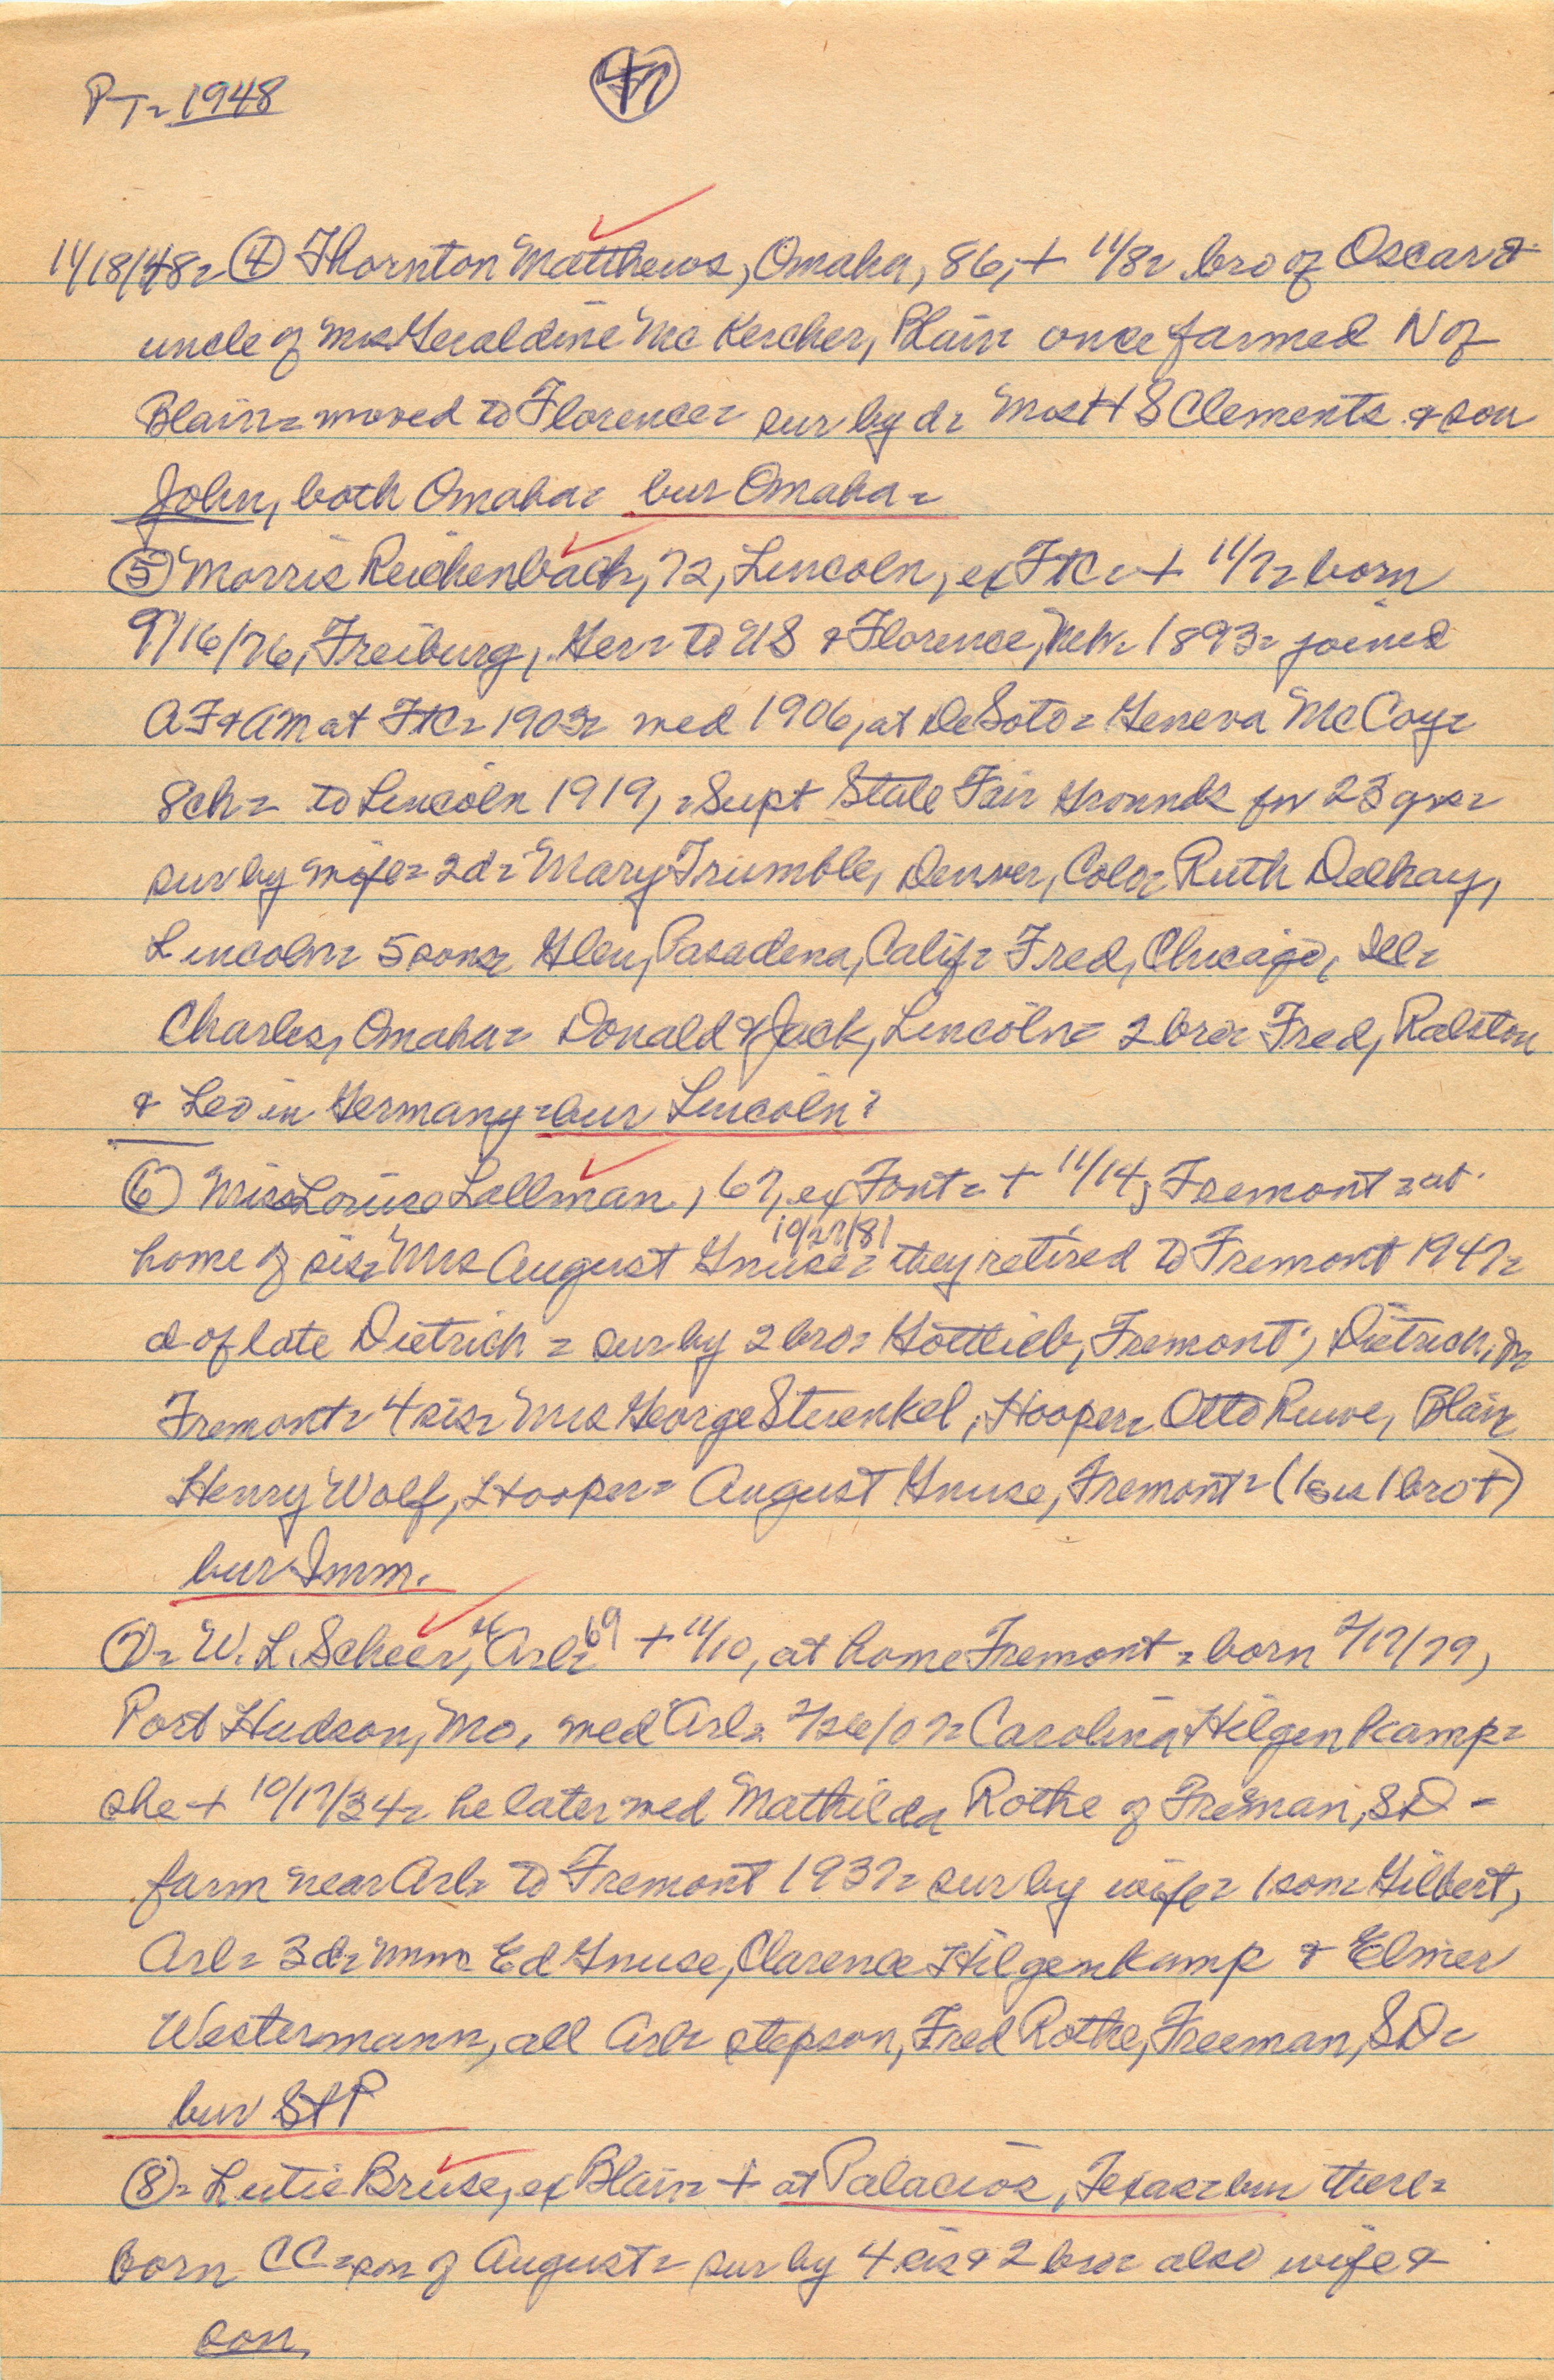 PT= 1948
47
11/18/48= ④ Thornton Matthews, Omaha, 86, + 11/8= bro of Oscar &
uncle of Mrs Geraldine McKercher, Blair= once farmed N of
Blair= moved to Florence= sur by d= Mrs H S Clements & son
John, both Omaha= bur Omaha=
⑤ Morris Reichenbach, 72, Lincoln, ex FtC= + 11/7= born
9/16/76, Freiburg, Ger= to US & Florence, Neb= 1893= joined
AF&AM at FtC= 1903= med 1906, at DeSoto= Geneva McCoy=
8ch= to Lincoln 1919, =Supt State Fair Grounds for 23 yrs=
sur by wife= 2d= Mary Trumble, Denver, Colo= Ruth Delhay,
Lincoln= 5 sons= Glen, Pasadena, Calif= Fred, Chicago, Ill=
Charles, Omaha= Donald & Jack, Lincoln= 2 bro= Fred, Ralston
& Leo in Germany= bur Lincoln=
⑥ Miss Louise Lallman, 67, ex Font= + 11/14, Fremont= at
10/27/81
home of sis= Mrs August Gnuse= they retired to Fremont 1947=
d of late Dietrich = sur by 2 bro= Gottlieb, Fremont; Dietrich, Jr
Fremont= 4 sis= Mrs George Stuenkel, Hooper= Otto Ruwe, Blair
Henry Wolf, Hooper= August Gnuse, Fremont= (1 sis 1 bro +)
bur Imm.
⑦= W. L. Scheer, ex Arl= 69 + 11/10, at home Fremont= born 2/17/79,
Port Hudson, Mo, med Arl= 2/26/07= Carolina Hilgenkamp=
she + 10/17/34= he later med Mathilda Rothe of Freeman, SD -
farm near Arl= to Fremont 1937= sur by wife= 1 son= Gilbert,
Arl= 3d= Mmm Ed Gnuse, Clarence Hilgenkamp & Elmer
Westermann, all Arl= stepson, Fred Rothe, Freeman, SD=
bur StP
⑧= Lutie Bruse, ex Blair= + at Palacios, Texas= bur there=
born CC= son of August= sur by 4 sis & 2 bro= also wife &
son,